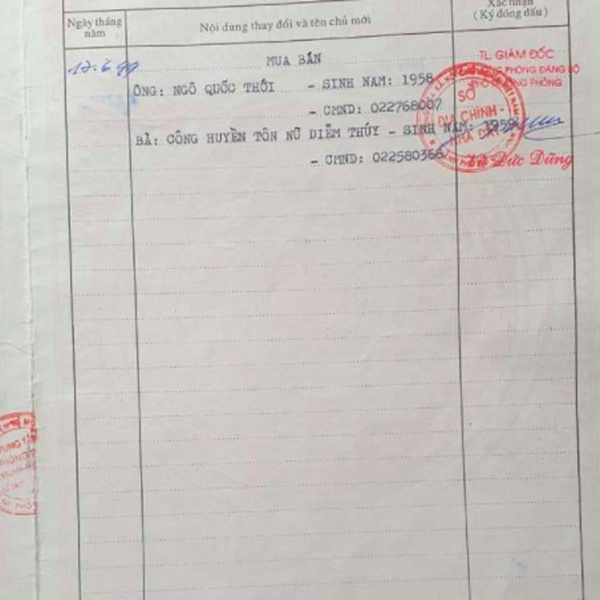 Ngày tháng năm
Nội dung thay đổi và tên chủ mới
Xác nhận
(Ký đóng dấu)
17.6.99
MUA BÁN
TL. GIÁM ĐỐC
PHÒNG ĐĂNG BỘ
PHÓ TRƯỞNG PHÒNG
ÔNG: NGÔ QUỐC THỚI - SINH NAM: 1958
- CMND: 022768007
SỞ
ĐỊA CHÍNH -
NHÀ ĐẤT
BÀ: CÔNG HUYỀN TÔN NỮ DIỄM THÚY - SINH NAM: 1959
- CMND: 022580366
Đức Dũng